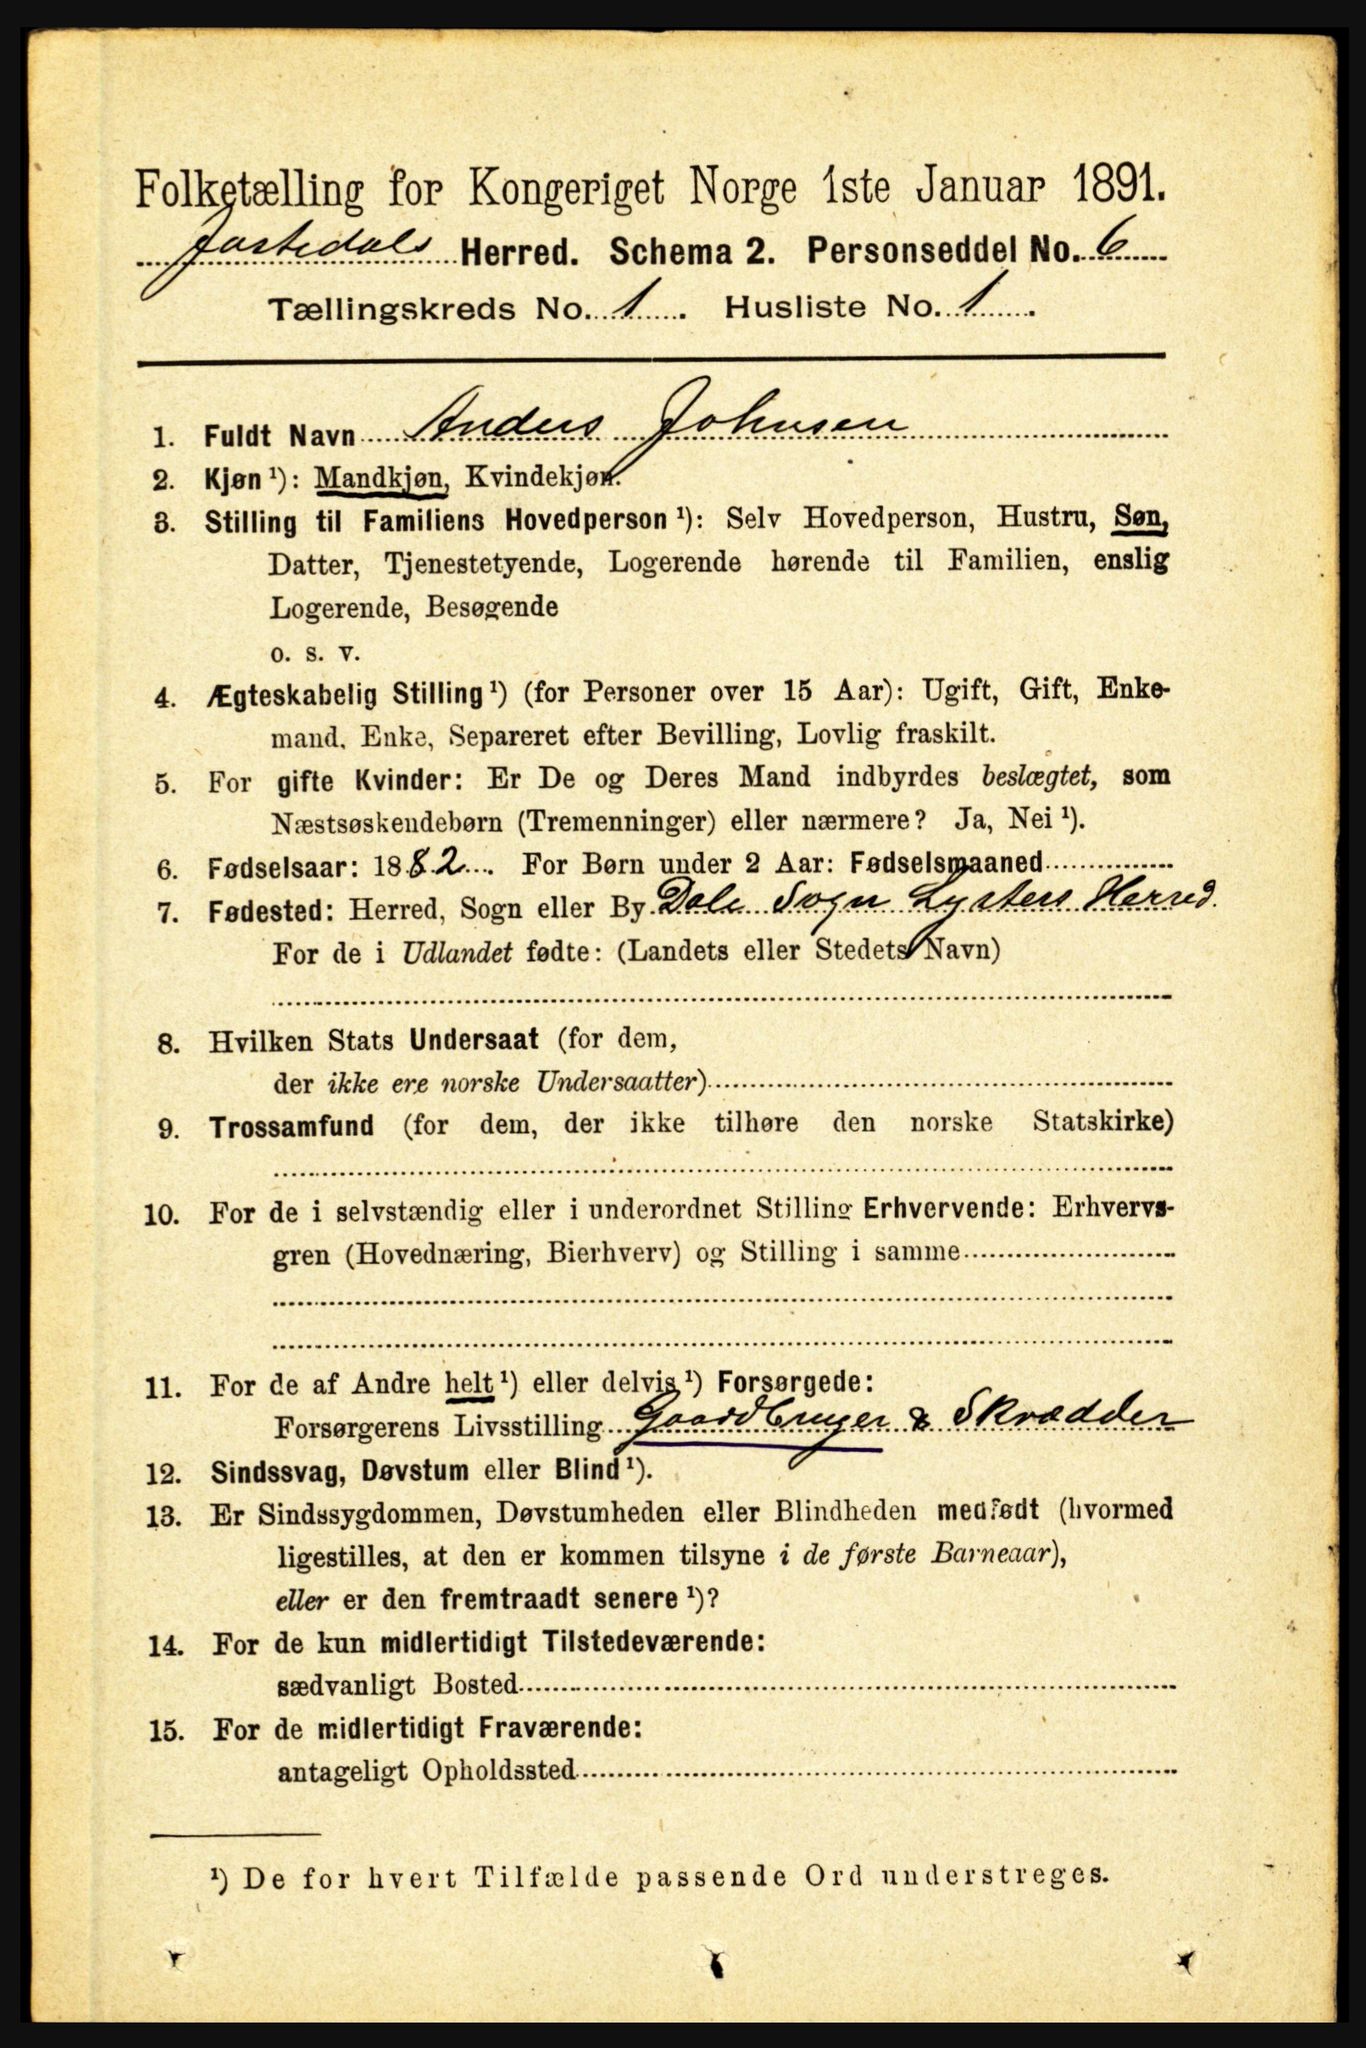 Folketælling for Kongeriget Norge 1ste Januar 1891.
Jostedals Herred. Schema 2. Personseddel No. 6
Tællingskreds No. 1. Husliste No. 1.
1. Fuldt Navn Anders Johnsen
2. Kjøn ¹): Mandkjøn, Kvindekjøn.
3. Stilling til Familiens Hovedperson ¹): Selv Hovedperson, Hustru, Søn,
Datter, Tjenestetyende, Logerende hørende til Familien, enslig
Logerende, Besøgende
o. s. v.
4. Ægteskabelig Stilling ¹) (for Personer over 15 Aar): Ugift, Gift, Enke-
mand, Enke, Separeret efter Bevilling, Lovlig fraskilt.
5. For gifte Kvinder: Er De og Deres Mand indbyrdes beslægtet, som
Næstsøskendebørn (Tremenninger) eller nærmere? Ja, Nei ¹).
6. Fødselsaar: 1882. For Børn under 2 Aar: Fødselsmaaned
7. Fødested: Herred, Sogn eller By Dale Sogn Lysters Herred.
For de i Udlandet fødte: (Landets eller Stedets Navn)
8. Hvilken Stats Undersaat (for dem,
der ikke ere norske Undersaatter)
9. Trossamfund (for dem, der ikke tilhøre den norske Statskirke)
10. For de i selvstændig eller i underordnet Stilling Erhvervende: Erhvervs-
gren (Hovednæring, Bierhverv) og Stilling i samme
11. For de af Andre helt ¹) eller delvis ¹) Forsørgede:
Forsørgerens Livsstilling Gaardbruger & Skrædder
12. Sindssvag, Døvstum eller Blind ¹).
13. Er Sindssygdommen, Døvstumheden eller Blindheden medfødt (hvormed
ligestilles, at den er kommen tilsyne i de første Barneaar),
eller er den fremtraadt senere ¹)?
14. For de kun midlertidigt Tilstedeværende:
sædvanligt Bosted
15. For de midlertidigt Fraværende:
antageligt Opholdssted
¹) De for hvert Tilfælde passende Ord understreges.